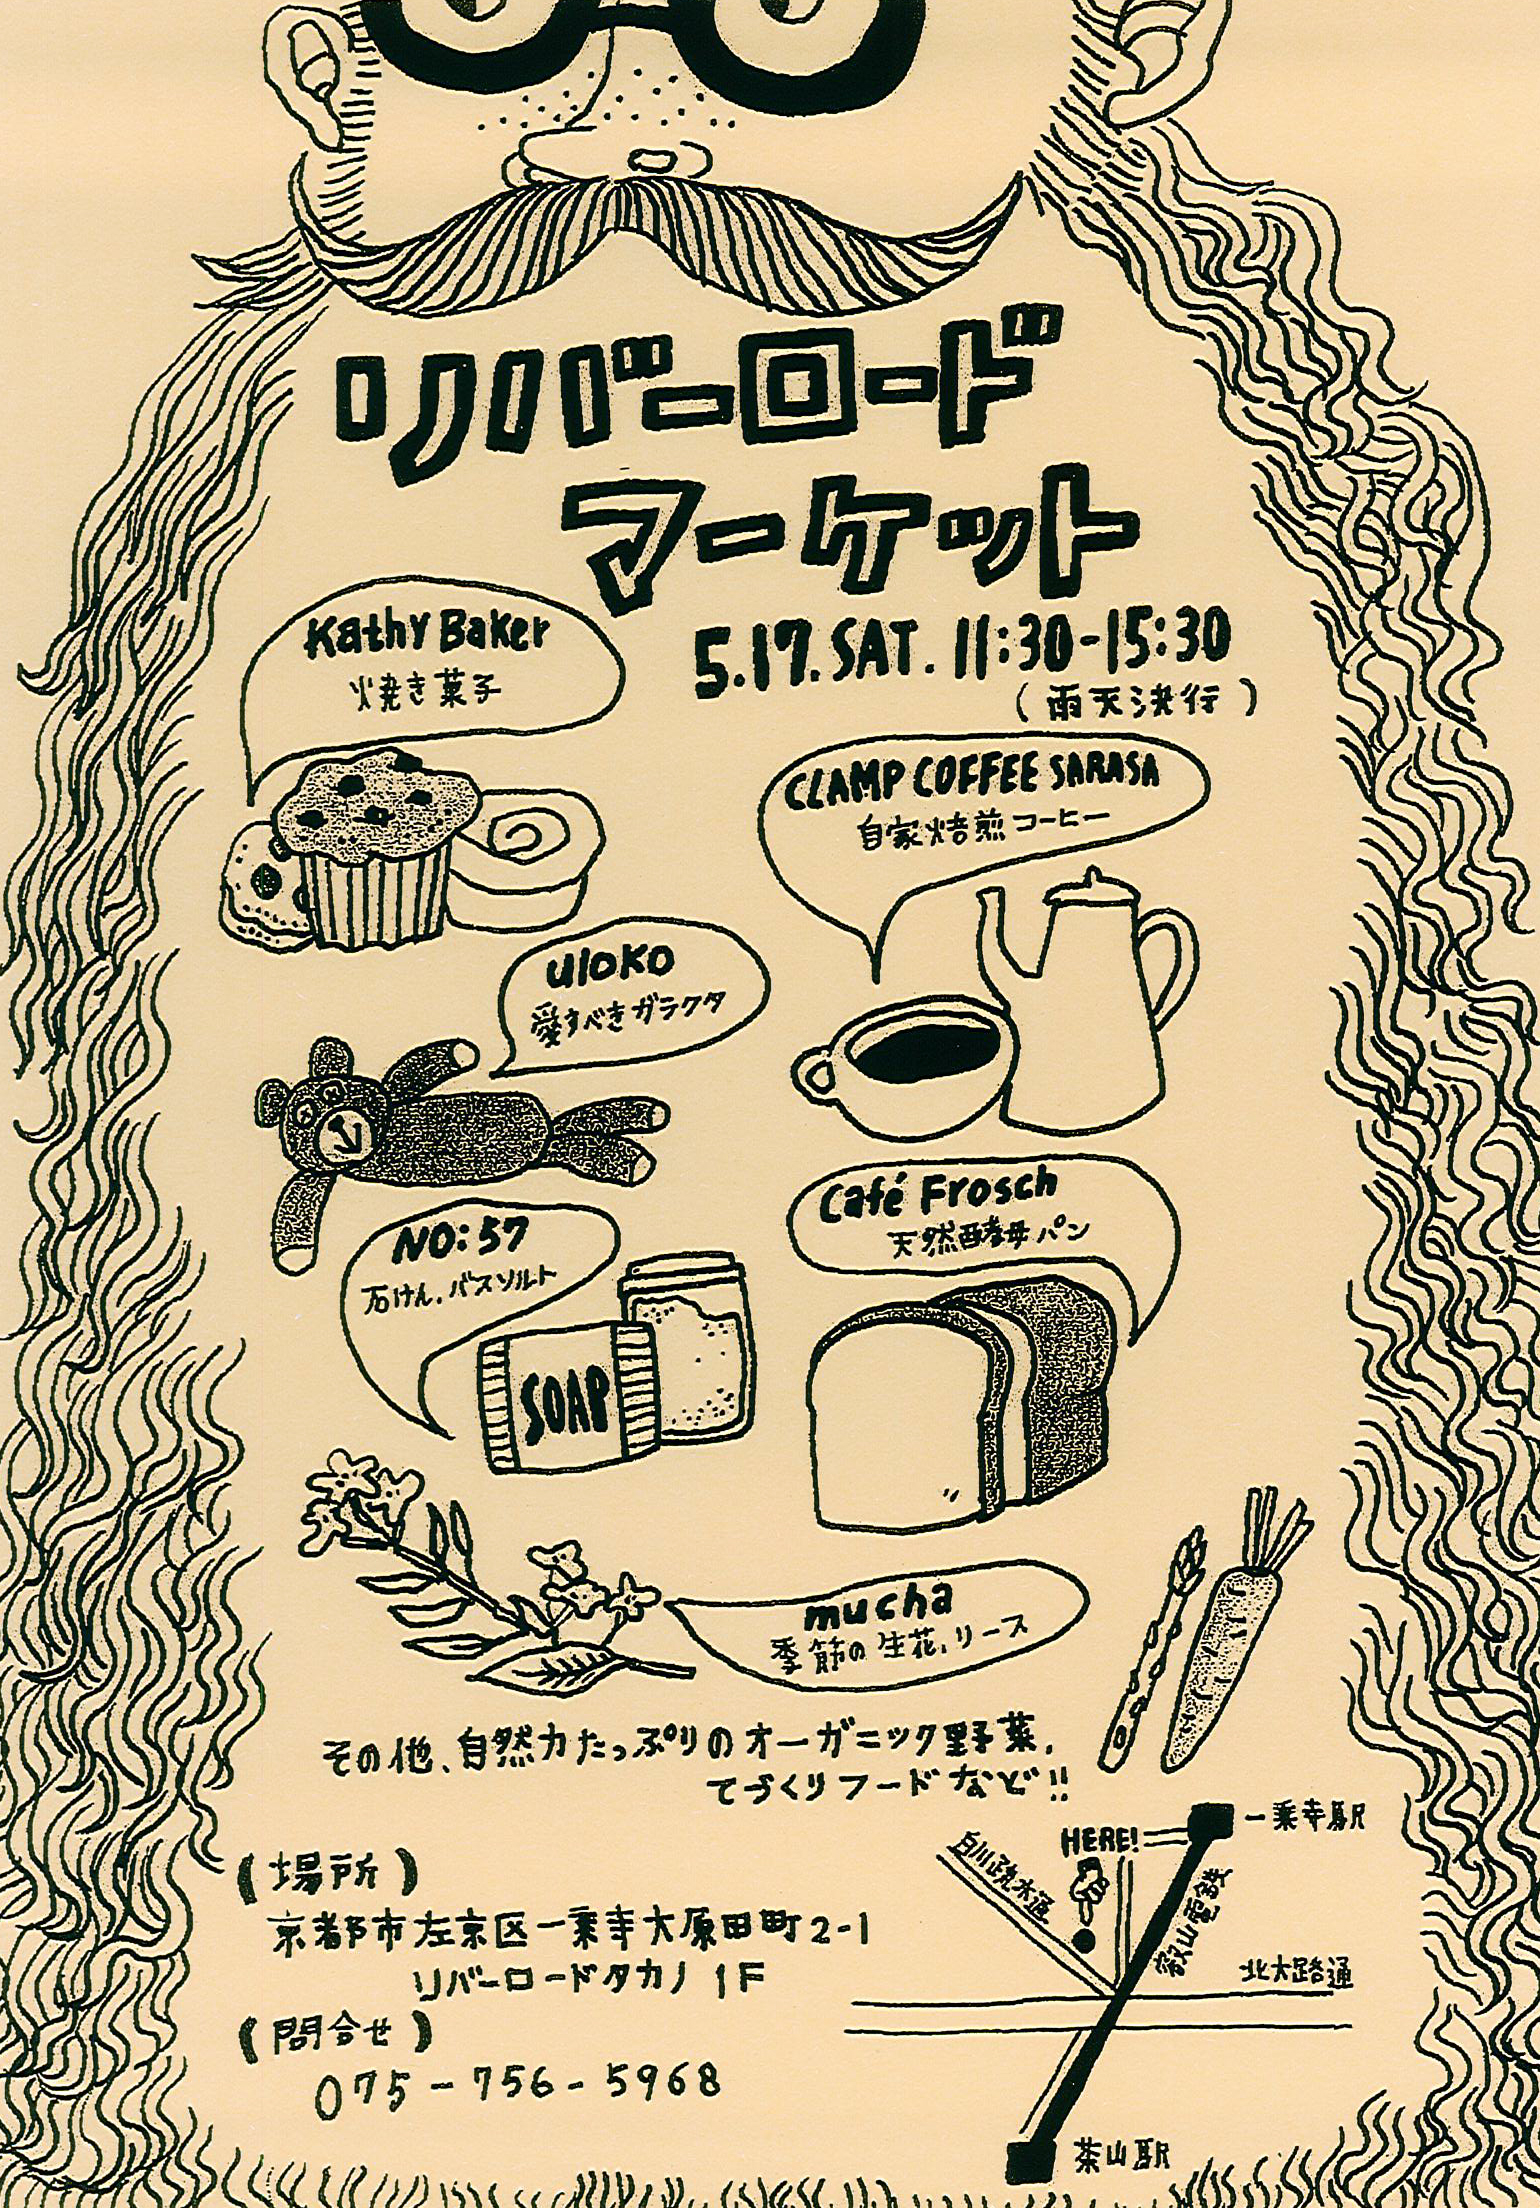 リバーロード
マーケット
5.17.SAT. 11:30-15:30
(雨天決行)
Kathy Baker
焼き菓子
CLAMP COFFEE SARASA
自家焙煎コーヒー
uloko
愛すべきガラクタ
Café Frosch
天然酵母パン
NO:57
石けん、バスソルト
SOAP
mucha
季節の生花、リース
その他、自然力たっぷりのオーガニック野菜、
てづくりフードなど!!
(場所)
京都市左京区一乗寺大原田町2-1
リバーロードタカノ 1F
(問合せ)
075-756-5968
一乗寺駅
HERE!
白川疏水通
叡山電鉄
北大路通
茶山駅